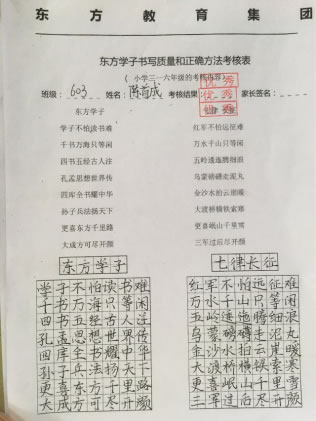 东方教育集团
东方学子书写质量和正确方法考核表
(小学三—六年级的考核内容)
班级: 603 姓名: 考核结果: 优秀 优秀 优秀 家长签名:
东方学子
学子不怕读书难
千书万海只等闲
四书五经古人注
孔孟思想世界传
四库全书耀中华
孙子兵法扬天下
更喜东方千里路
大成方可尽开颜
七律 长征
红军不怕远征难
万水千山只等闲
五岭逶迤腾细浪
乌蒙磅礴走泥丸
金沙水拍云崖暖
大渡桥横铁索寒
更喜岷山千里雪
三军过后尽开颜
东方学子
学子不怕读书难
千书万海只等闲
四书五经古人注
孔孟思想世界传
四库全书耀中华
孙子兵法扬天下
更喜东方千里路
大成方可尽开颜
七律长征
红军不怕远征难
万水千山只等闲
五岭逶迤腾细浪
乌蒙磅礴走泥丸
金沙水拍云崖暖
大渡桥横铁索寒
更喜岷山千里雪
三军过后尽开颜